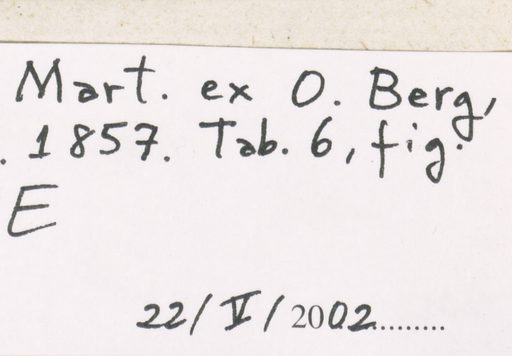 Mart. ex O. Berg,
. 1857. Tab. 6, fig.
E
22/V/2002.........